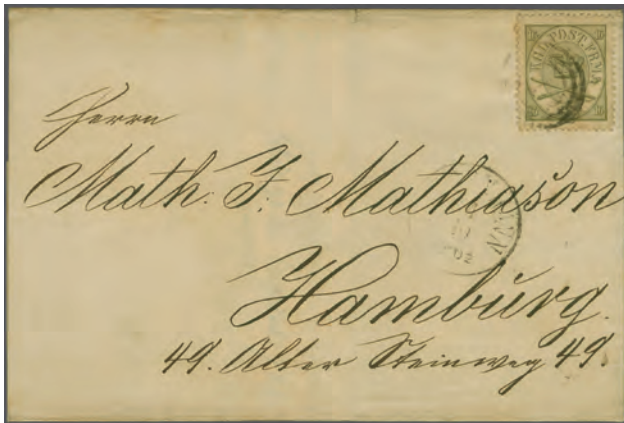 KGL.POST.FRMK
Herrn
Math: F: Mathiason
Hamburg.
49. Alter Steinweg 49.